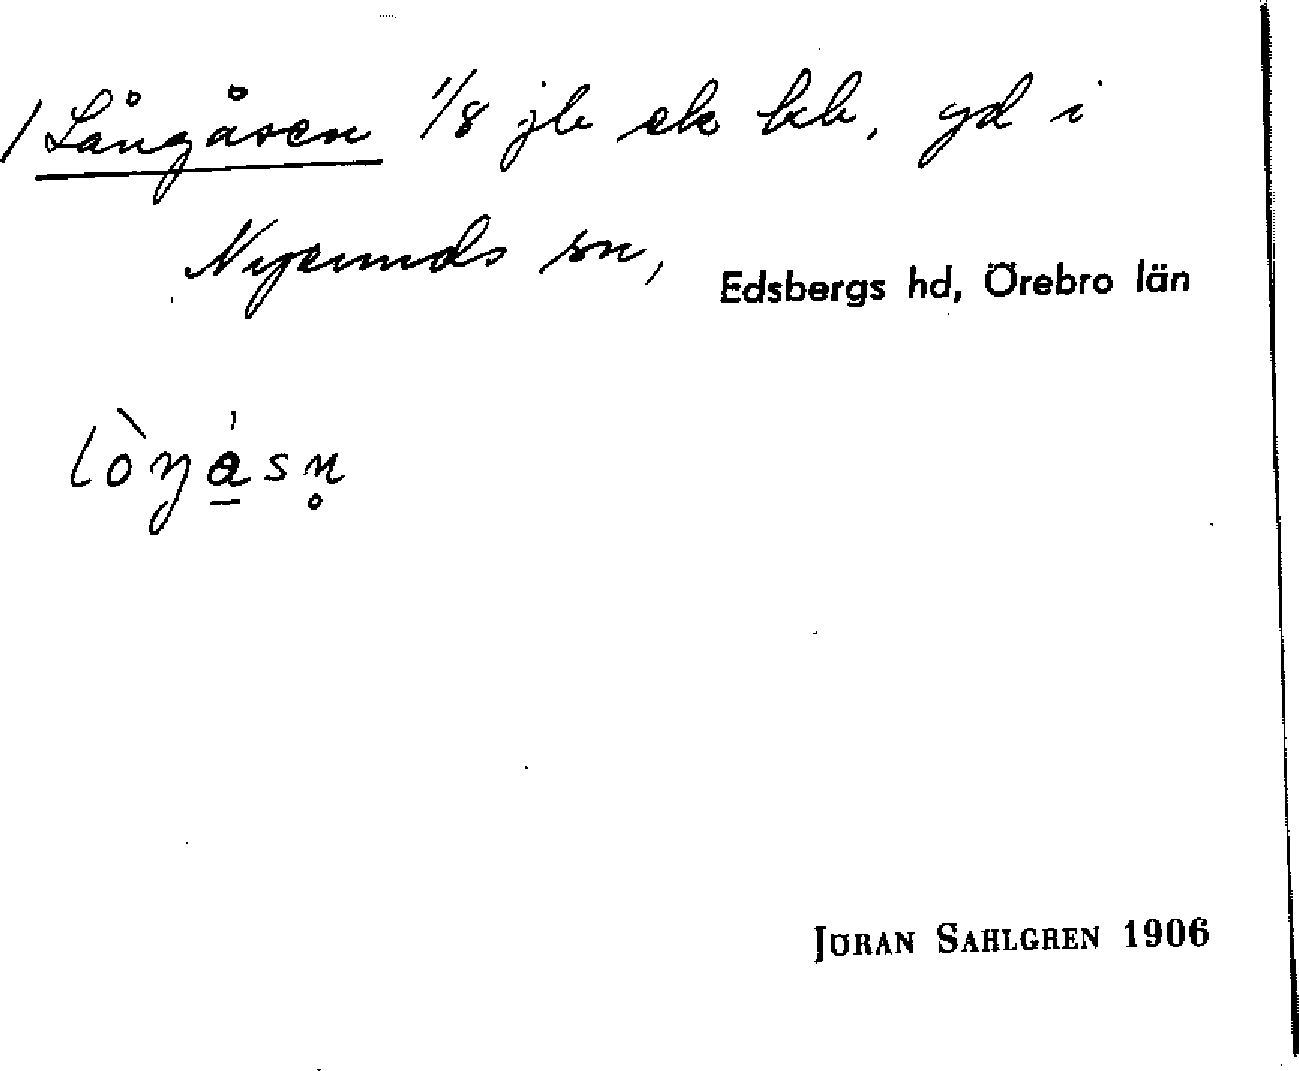 / Långåsen 1/8 jb sk kb, gd i
Nysunds sn, Edsbergs hd, Örebro län
lòŋa̲̍sn̥
JÖRAN SAHLGREN 1906